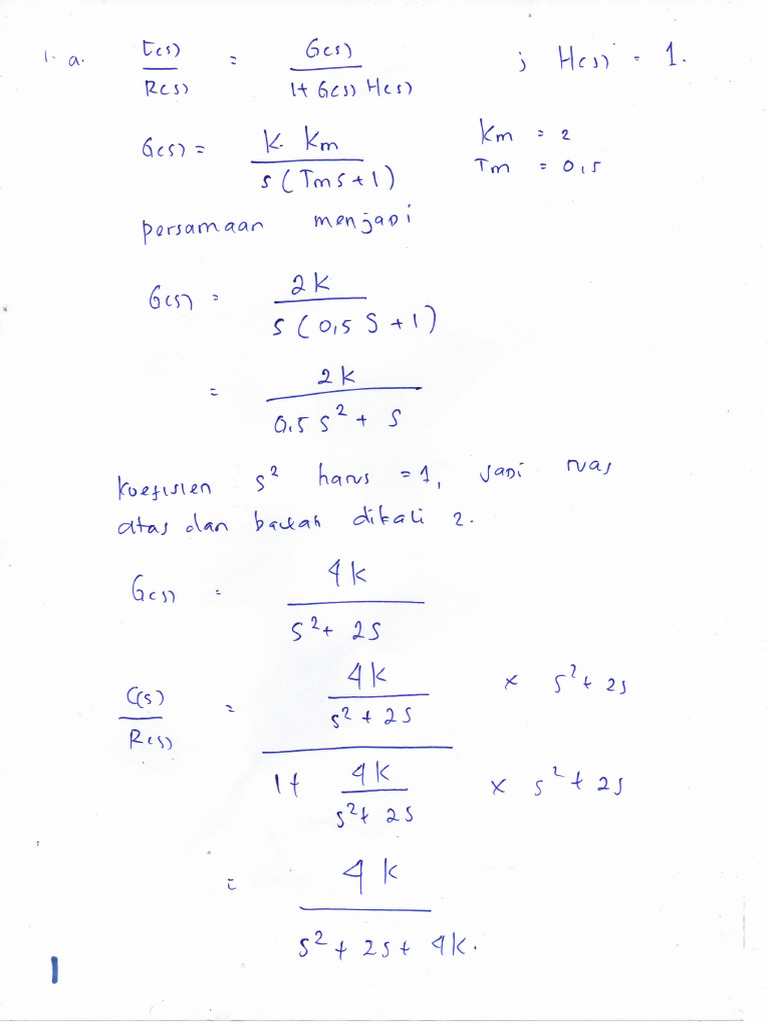 1. a. C(s)/R(s) = G(s)/(1+ G(s) H(s)) ; H(s) = 1.
G(s) = K. Km/(s (Tms + 1)) Km = 2
Tm = 0,5
persamaan menjadi
G(s) = 2K/(s (0,5 s + 1))
= 2K/(0.5 s² + s)
koefisien s² harus = 1, jadi ruas
atas dan bawah dikali 2.
G(s) = 4K/(s² + 2s)
C(s)/R(s) = (4K/(s² + 2s))/(1+ 4K/(s² + 2s)) × s² + 2s × s² + 2s
= 4K/(s² + 2s + 4K).
1